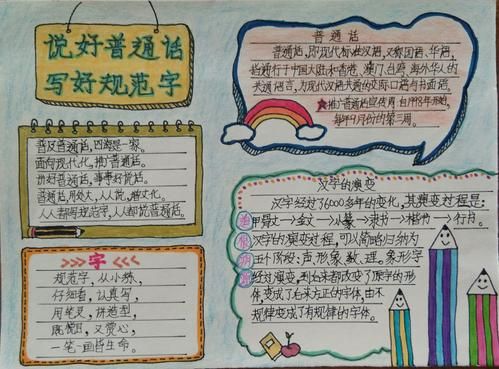 说好普通话
写好规范字
普通话
普通话,即现代标准汉语,又称国语、华语,
普通行于中国大陆和香港、澳门、台湾、海外华人的
共通语言,为现代汉语共通的交际口语与书面语。
推广普通话宣传周 自1998年开始,
每年9月份的第三周。
普及普通话,四海是一家。
面向现代化,推广普通话。
讲好普通话,事事好说话。
普通话,用处大,人人说,增文化。
人人都写规范字,人人都说普通话。
字
规范字,从小练,
仔细看,认真写,
用笔灵,拼造型,
既悦目,又赏心,
一笔一画皆生命。
汉字的演变
汉字经过了6000多年的变化,其演变过程是:
甲骨文→金文→小篆→隶书→楷书→行书。
汉字的演变过程,可以简略归纳为
五个阶段:声、形、象、数、理。象形字
经过演变,到后来都改变了原字的形
体,变成了后来方正的字体,由不
规律变成了有规律的字体。